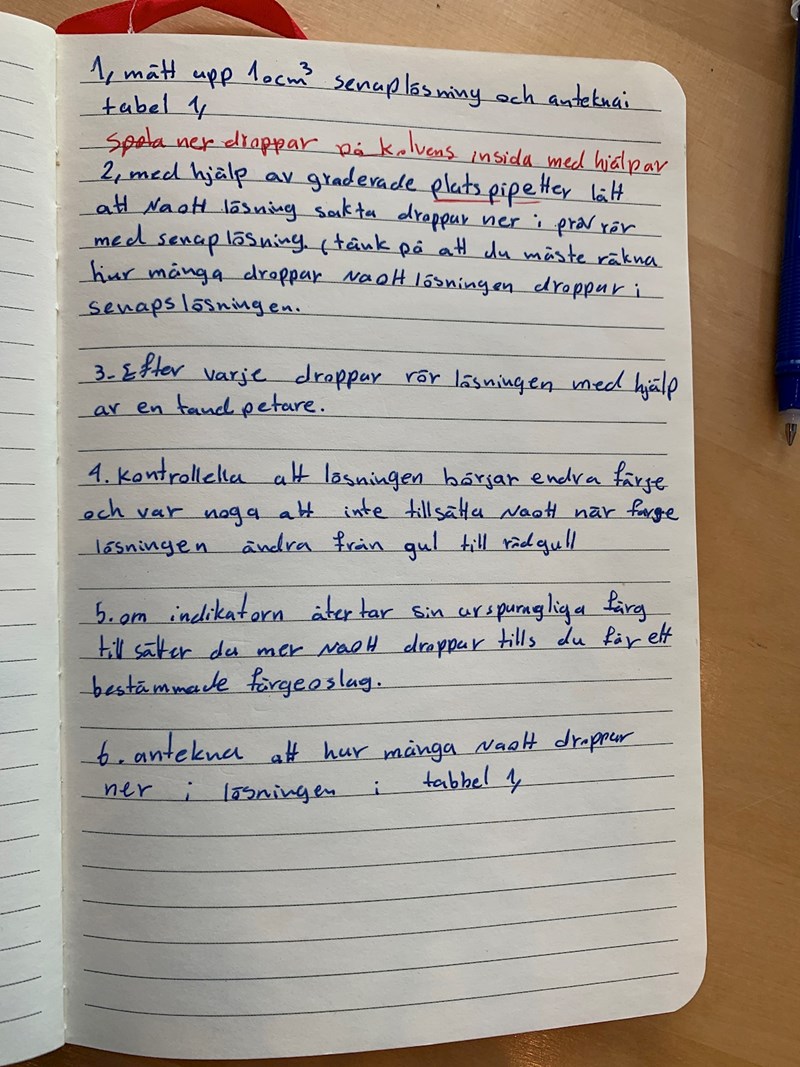 1, mätt upp 10cm³ senaplösning och antekna i
tabel 1,
spola ner droppar på kolvens insida med hjälp av
2, med hjälp av graderade plats pipetter lått
att NaOH lösning sakta droppar ner i prov rör
med senap lösning. (tänk på att du måste räkna
hur många droppar NaOH lösningen droppar i
senaps lösningen.
3- Efter varje droppar rör lösningen med hjälp
av en tand petare.
4. kontrollella att lösningen börjar endra färge
och var noga att inte tillsätta NaOH när farge
lösningen ändra från gul till rödgull
5. om indikatorn åter tar sin urspurngliga färg
till sätter du mer NaOH droppar tills du får ett
bestämmade färgeoslag.
6. antekna att hur många NaOH droppar
ner i lösningen i tabbel 1,